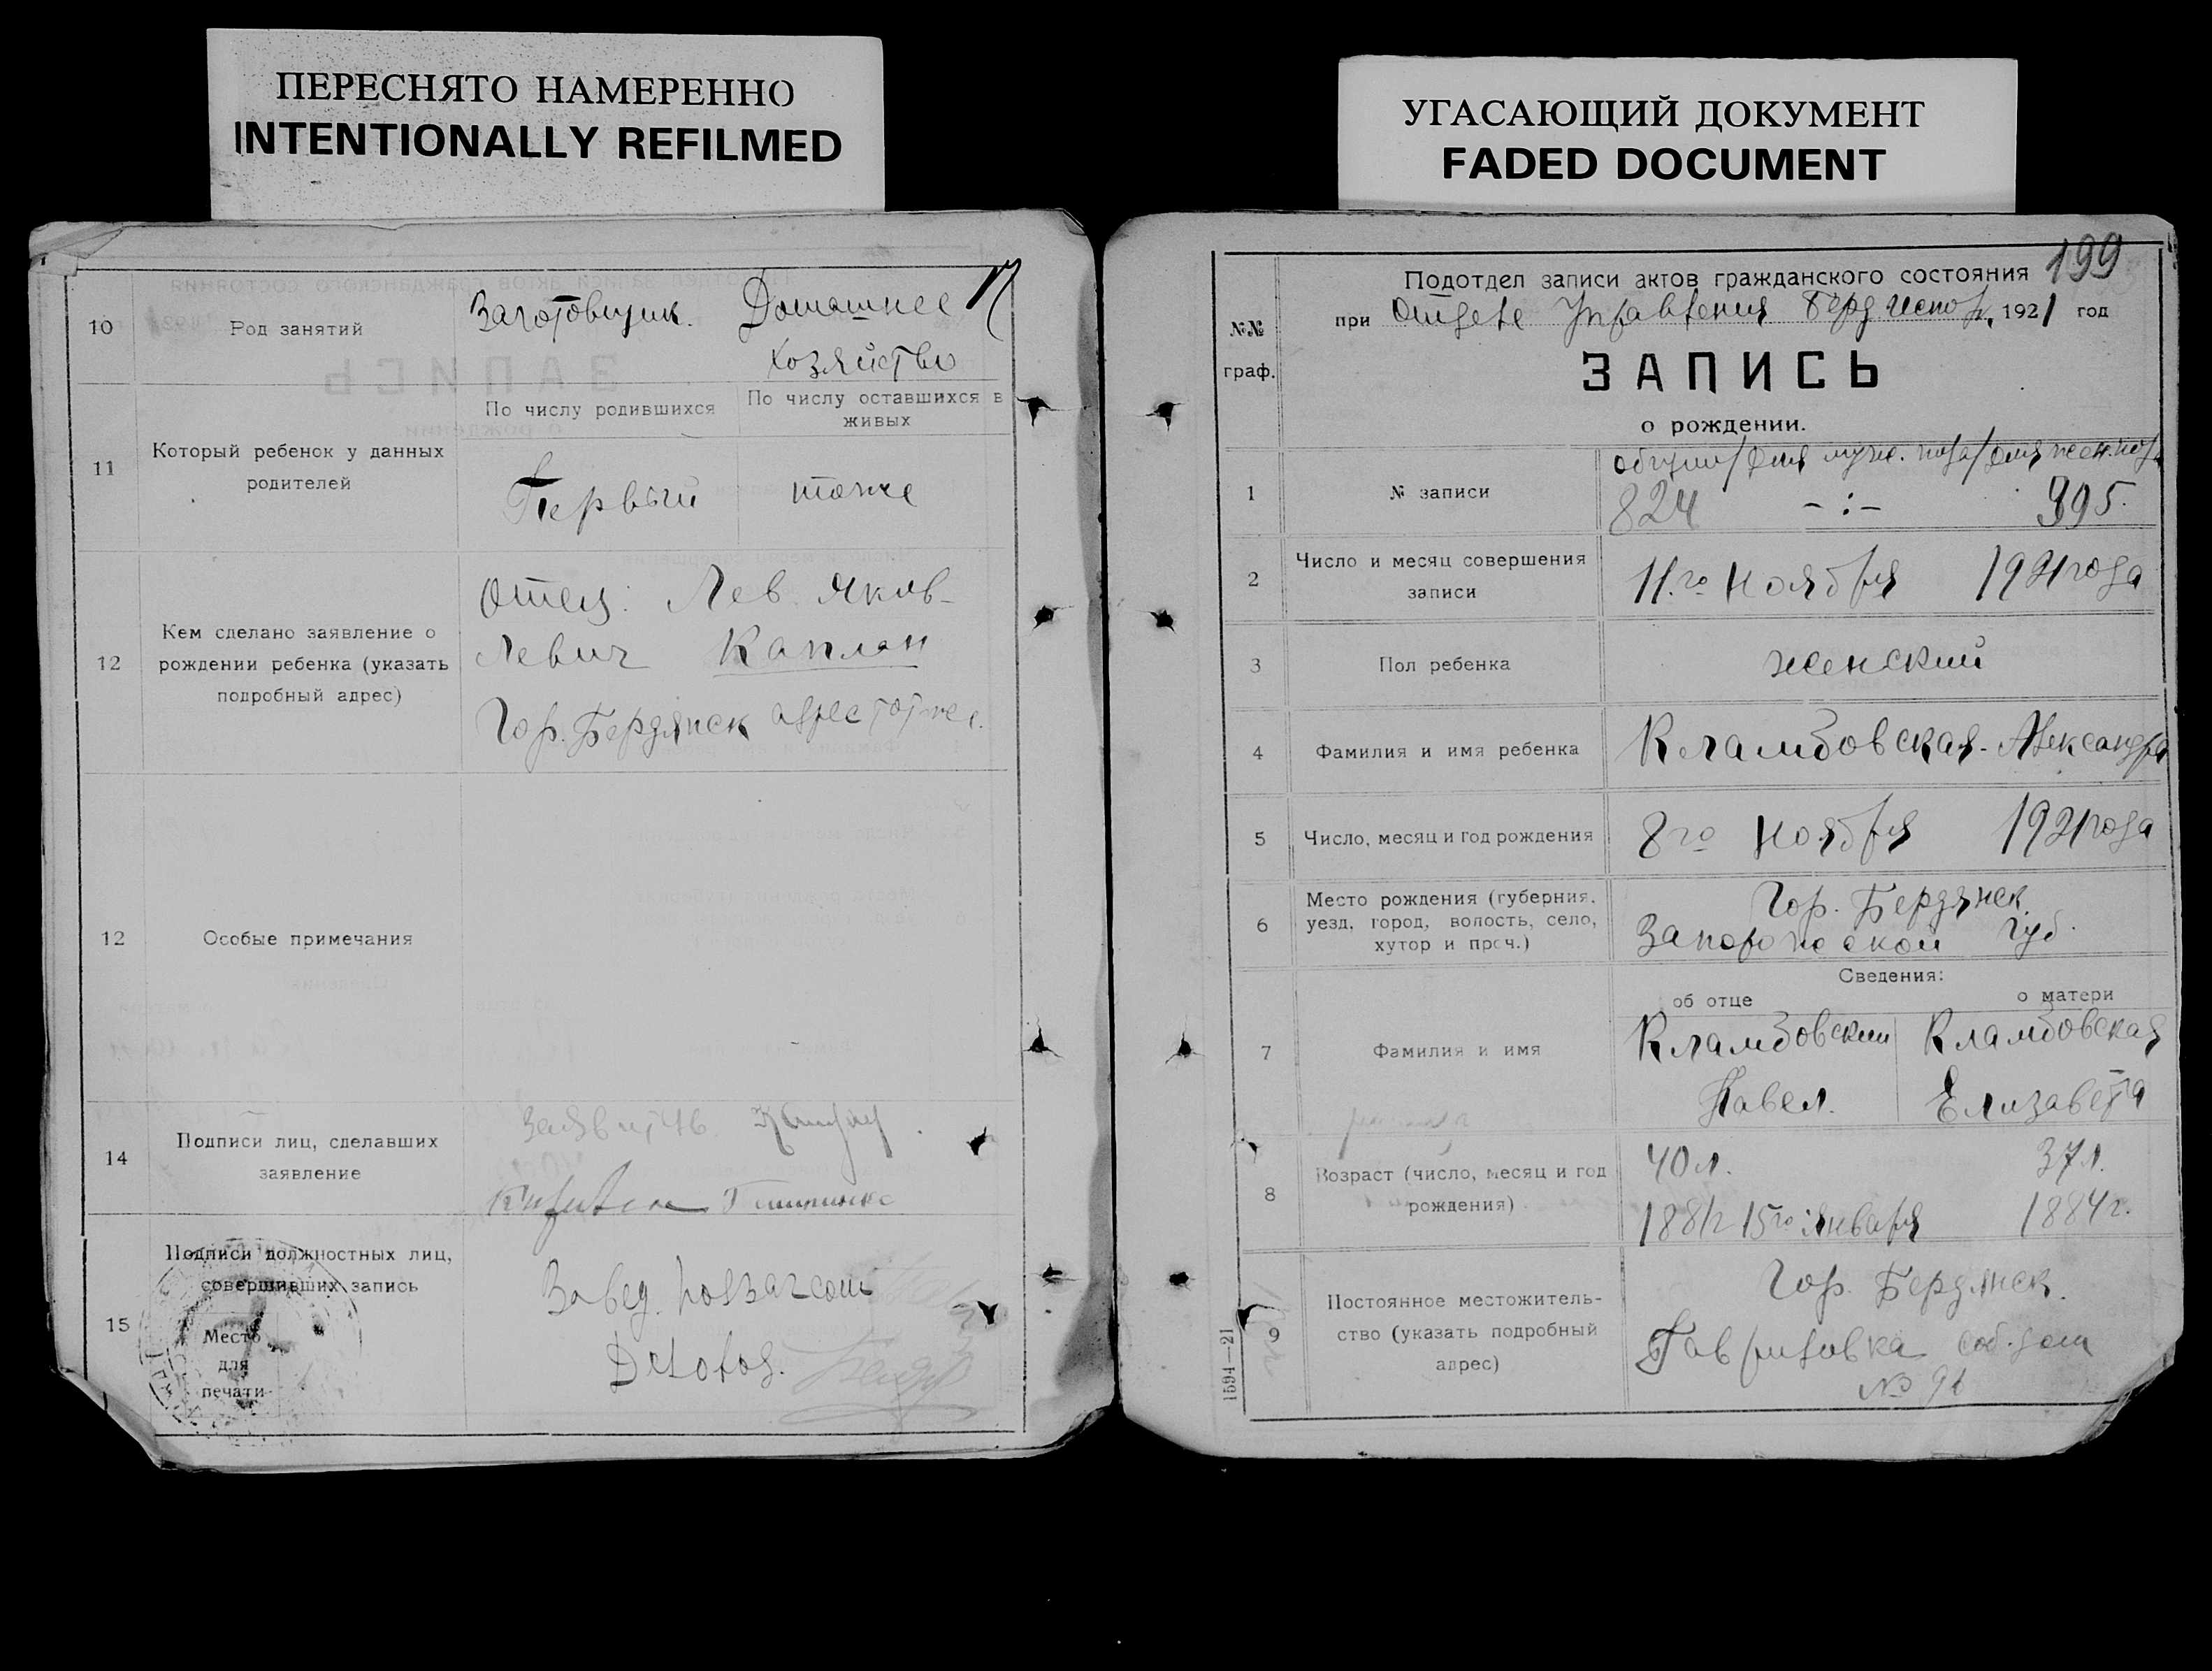 ПЕРЕСНЯТО НАМЕРЕННО
INTENTIONALLY REFILMED
10
Род занятий
Заготовщик.
Домашнее
хозяйство
11
Который ребенок у данных
родителей
По числу родившихся
По числу оставшихся в
живых
Первый
тоже
12
Кем сделано заявление о
рождении ребенка (указать
подробный адрес)
Отец: Лев Яков-
левич Каплан
Гор. Бердянск адрес тотже.
12
Особые примечания
14
Подписи лиц, сделавших
заявление
15
Подписи должностных лиц,
совершивших запись
Место
для
печати
Завед. подзагсом
Делопр.
УГАСАЮЩИЙ ДОКУМЕНТ
FADED DOCUMENT
199
№№
граф.
Подотдел записи актов гражданского состояния
при Отделе Управления Берд исполк, 1921 год
ЗАПИСЬ
о рождении.
1
№ записи
общий/для муже. пола/для жен. пола
824 -:- 395.
2
Число и месяц совершения
записи
11.го Ноября 1921 года
3
Пол ребенка
женский
4
Фамилия и имя ребенка
Кламбовская - Александра
5
Число, месяц и год рождения
8го Ноября 1921 года
6
Место рождения (губерния,
уезд, город, волость, село,
хутор и проч.)
Гор. Бердянск
Запорожской Губ.
Сведения:
об отце
о матери
7
Фамилия и имя
Кламбовский
Павел.
Кламбовская
Елизавета
8
Возраст (число, месяц и год
рождения)
40 л.
1881 г 15го Января
37 л.
1884 г.
9
Постоянное местожитель-
ство (указать подробный
адрес)
Гор. Бердянск.
Гавриловка соб. дом
№ 91
1594—21